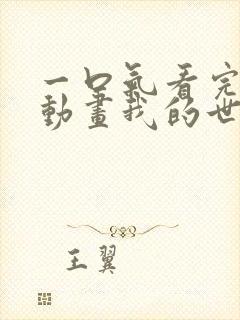 一口氣看完
動畫我的世
王翼